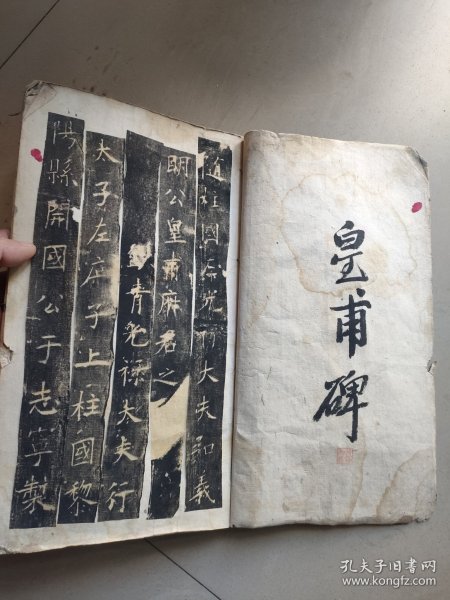 皇甫碑
隨柱國左光祿大夫弘義
明公皇甫府君之
青光祿大夫行
太子左庶子上柱國黎
陽縣開國公于志寧製
孔夫子旧书网
www.kongfz.com